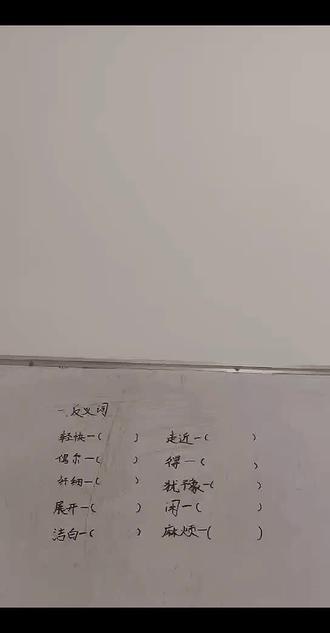 一.反义词
轻快—( ) 走近—( )
偶尔—( ) 得—( )
纤细—( ) 犹豫—( )
展开—( ) 闲—( )
洁白—( ) 麻烦—( )